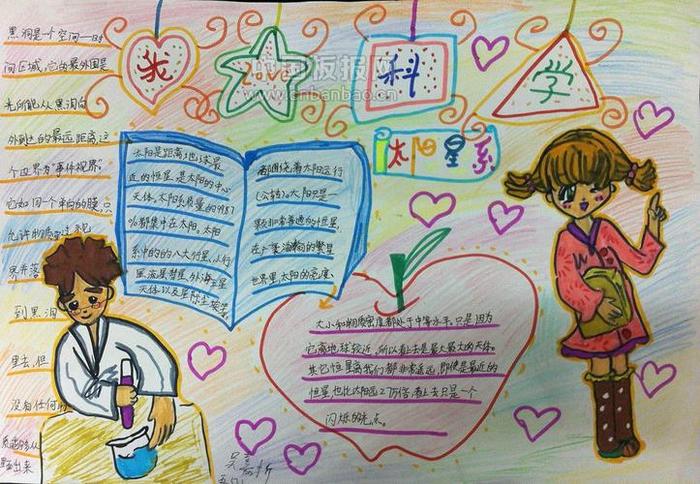 我 爱 科 学
中国板报网
www.cnbanbao.cn
太阳星系
黑洞是一个空间—时
间区域，它的最外围是
光所能从黑洞向
外到达的最远距离，这
个边界为“事件视界”。
它如同一个单向的膜，只
允许
界并落
到黑洞
里去，但
没有任何
质能够从
里出来
太阳是距离地球最
近的恒星，是太阳的中心
天体。太阳系质量的99.87
%都集中在太阳。太阳
系中的的八大行星、小行
星、流星、彗星、外海王星
天体以及星际尘埃等，
都围绕着太阳运行
（公转）。太阳只是
非常普通的恒星，
在广袤浩瀚的繁星
世界里，太阳的亮度、
大小和物质密度都处于中等水平。只是因为
它离地球较近，所以看上去是最大最大的天体。
其它恒星离我们都非常遥远，即使是最近的
恒星，也比太阳远27万倍，看上去只是一个
闪烁的光点。